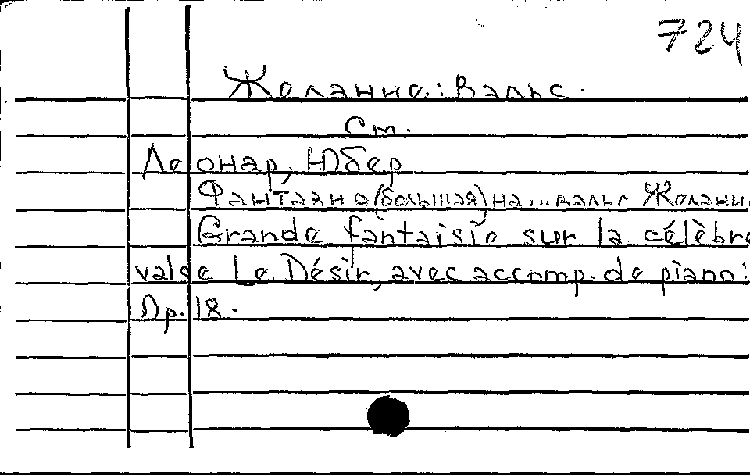 724
Желание: Вальс.
См.
Леонар, Юбер
Фантазия (большая) на... вальс Желани
Grande fantaisie sur la célèbre
valse Le Désir, avec accomp. de piano:
Op. 18.